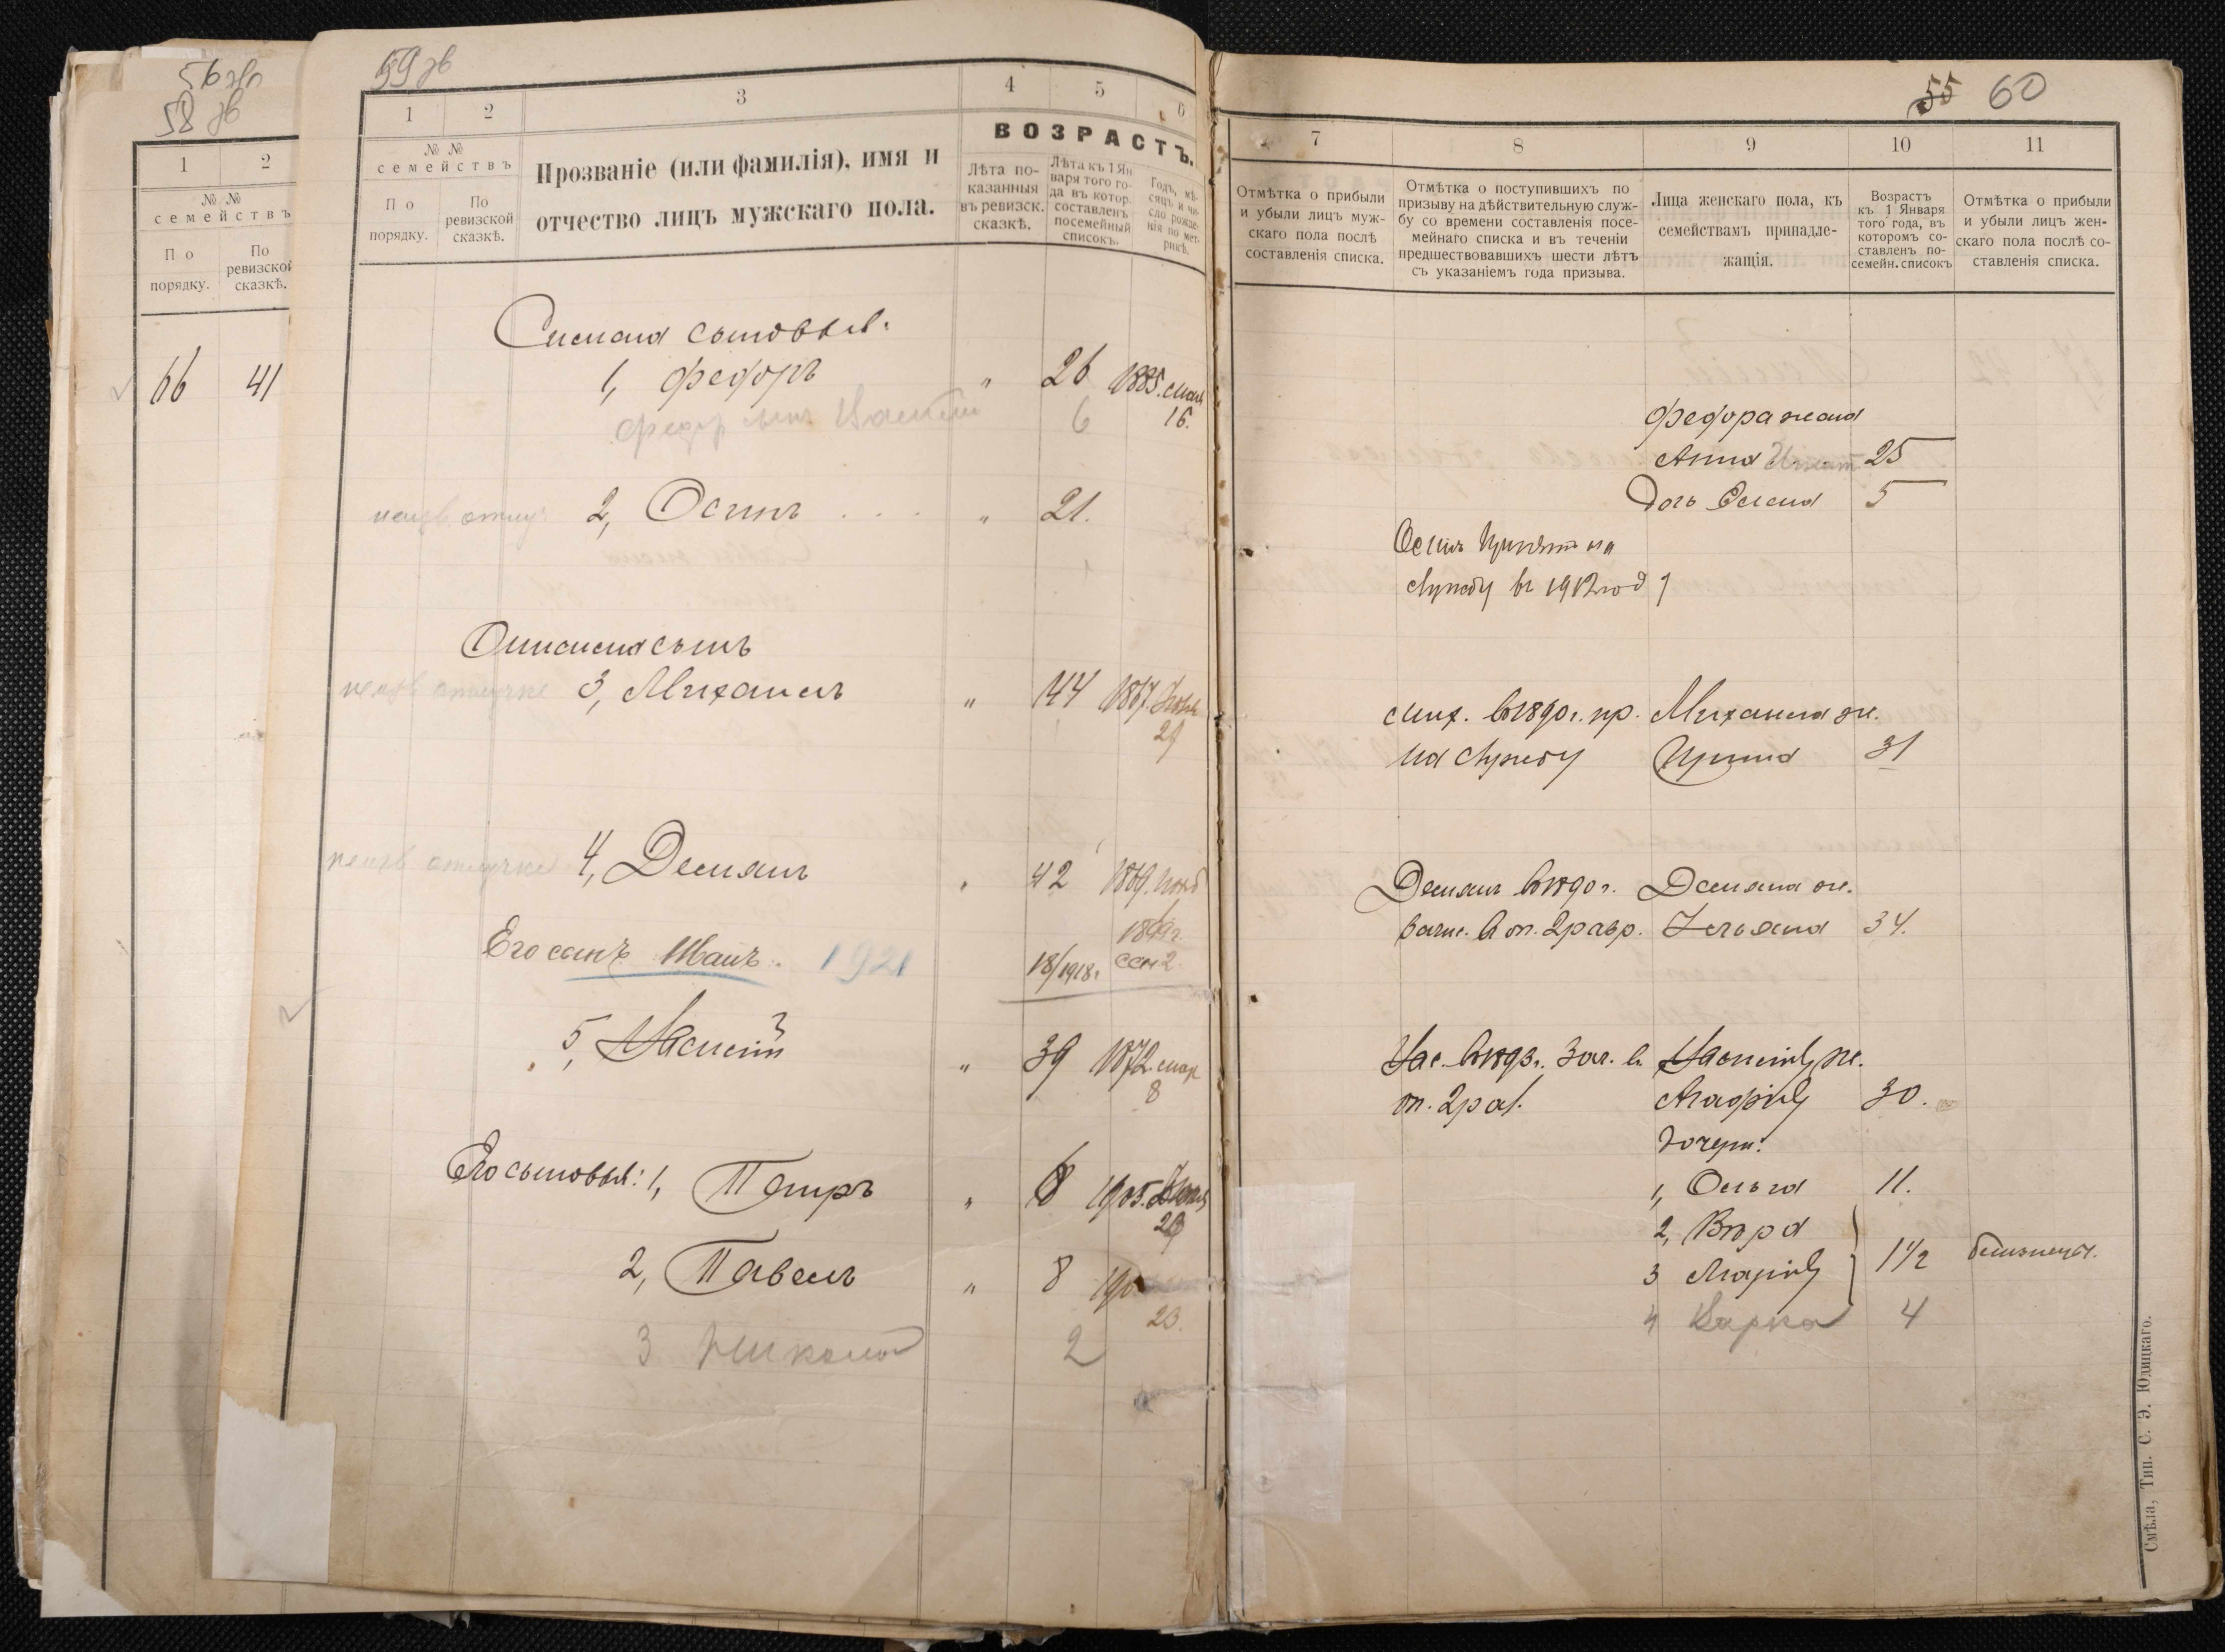 56 зв
58 зв
1 2
№ №
семействъ
По порядку.
По ревизской сказкѣ.
66 41
59 зв
1 2 3 4 5 6
№ №
семействъ
По порядку.
По ревизской сказкѣ.
Прозваніе (или фамилія), имя и
отчество лицъ мужскаго пола.
ВОЗРАСТЪ.
Лѣта по-
казанныя
въ ревизск.
сказкѣ.
Лѣта къ 1 Ян
варя того го-
да въ котор.
составленъ
посемейный
списокъ.
Годъ, мѣ-
сяцъ и чи-
сло рожде-
нія по мет-
рикѣ.
сыновья.
1, Федоръ " 26 1885. мая
16.
Федор сын 6
2, Осипъ . . . " 21.
сынъ
3, Михаилъ " 44 1867.
29
4, Демянъ 42 1869.
Его сынъ Иванъ. 1921 18/1918г 1899г.
сен 2.
5, " 39 1872. мар
8
Его сыновья: 1, Петръ " 6 1905.
2, Павелъ " 8 190
23.
3 Николай 2
55 60
7 8 9 10 11
Отмѣтка о прибыли
и убыли лицъ муж-
скаго пола послѣ
составленія списка.
Отмѣтка о поступившихъ по
призыву на дѣйствительную служ-
бу со времени составленія посе-
мейнаго списка и въ теченіи
предшествовавшихъ шести лѣтъ
съ указаніемъ года призыва.
Лица женскаго пола, къ
семействамъ принадле-
жащія.
Возрастъ
къ 1 Января
того года, въ
которомъ со-
ставленъ по-
семейн. списокъ
Отмѣтка о прибыли
и убыли лицъ жен-
скаго пола послѣ со-
ставленія списка.
Федора жена
Анна 25
Дочь Елена 5
Осипъ Принят на
службу въ 1912 году
Мих. въ 1890 г. пр. Михаила ж.
на службу Ирина 31
Демянъ въ 1890 г. Демяна ж.
зачис. в оп. 2 разр. Ульяна 34.
Зач. в ж.
оп. 2 раз. 30.
дочери:
1, Ольга 11.
2, Вѣра
3 Марія 1 1/2 близнецы.
4 4
Смѣла, Тип. С. Э. Юдицкаго.